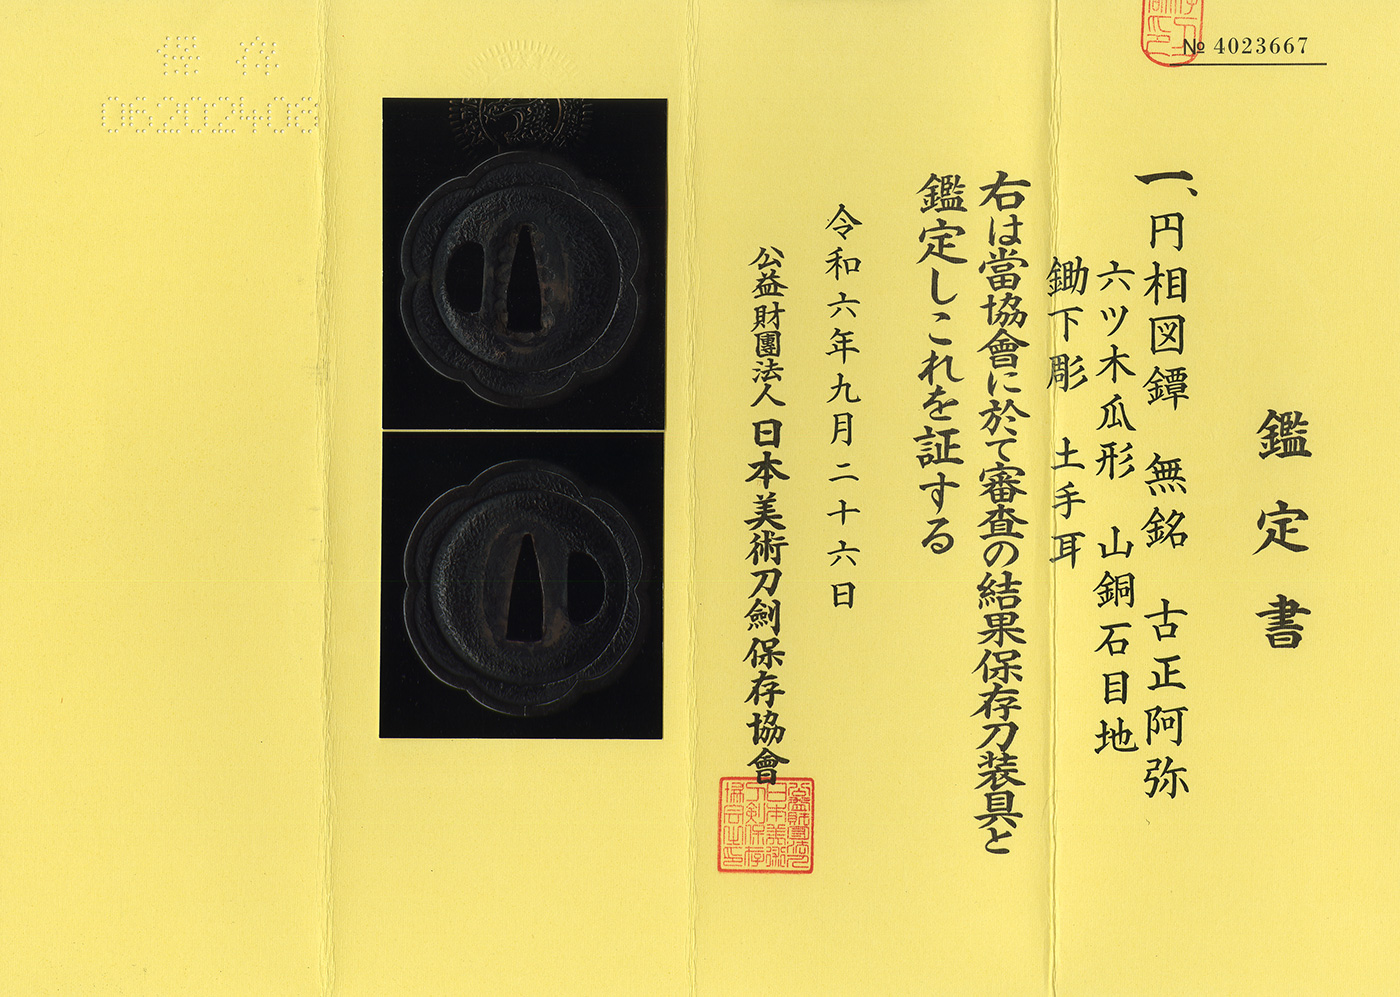 № 4023667
鑑定書
一、円相図鐔　無銘　古正阿弥
六ツ木瓜形　山銅石目地
鋤下彫　土手耳
右は當協會に於て審査の結果保存刀装具と
鑑定しこれを証する
令和六年九月二十六日
公益財團法人 日本美術刀劍保存協會
公益財團法人
日本美術
刀剣保存
協会之印
保存
06202408